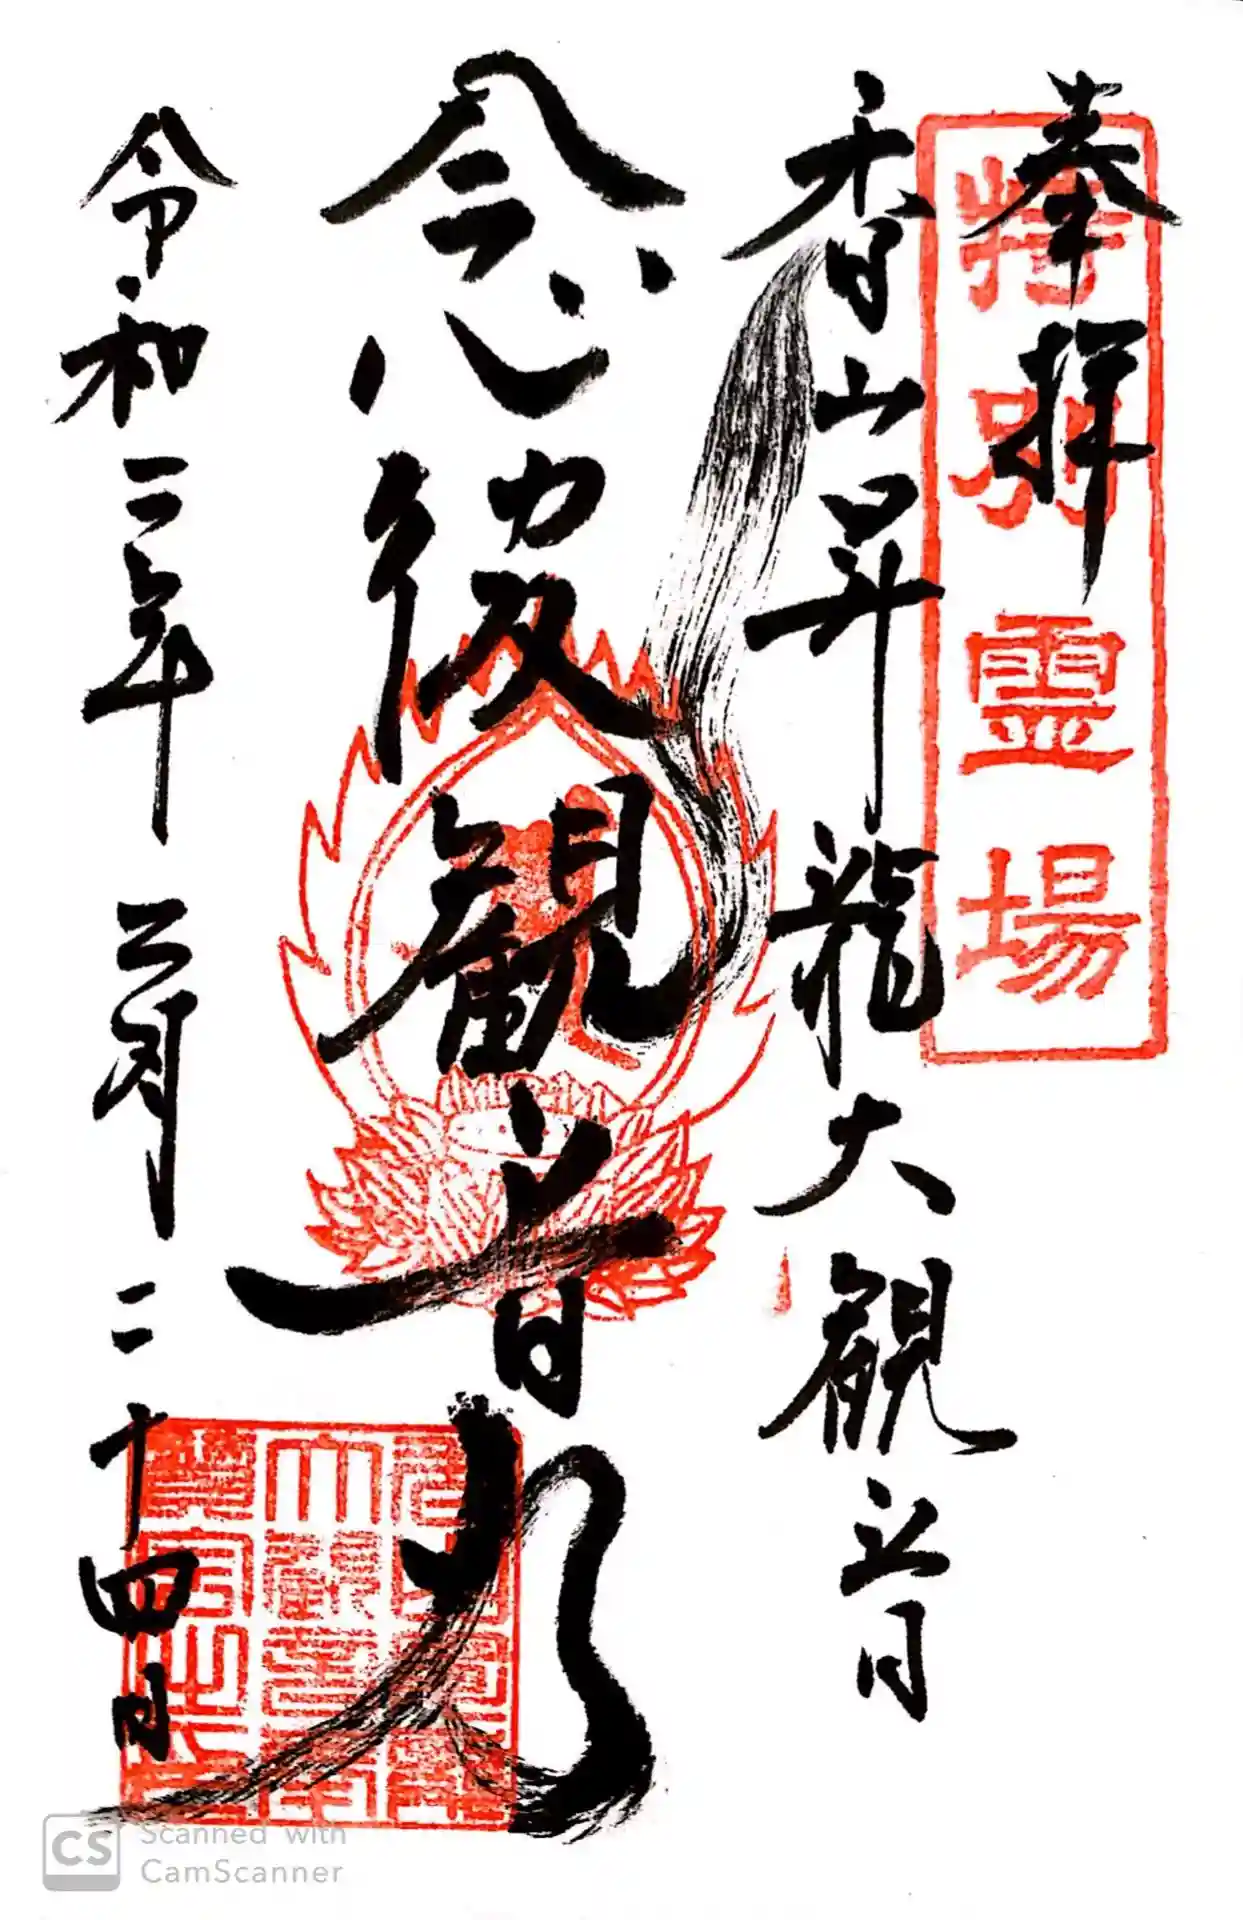 奉拝
特別霊場
香山昇龍大観音
念彼観音力
令和二年三月二十四日
Scanned with
CamScanner